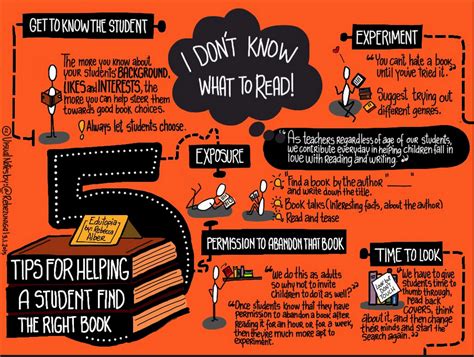 GET TO KNOW THE STUDENT
The more you know about
your students' BACKGROUND,
LIKES and INTERESTS, the
more you can help steer them
towards good book choices.
! Always let students choose.
I DON'T KNOW
WHAT TO READ!
EXPERIMENT
"You can't hate a book
until you've tried it."
Suggest trying out
different genres.
"As teachers regardless of age of our students,
we contribute everyday in helping children fall in
love with reading and writing."
EXPOSURE
"Find a book by the author" "
and write down the title.
Book talks (Interesting facts, about the author)
Read and tease
5
Edutopia
by: Rebecca
Alber
TIPS FOR HELPING
A STUDENT FIND
THE RIGHT BOOK
PERMISSION TO ABANDON THAT BOOK
"We do this as adults
so why not to invite
Children to do it as well?
"Once students know that they have
permission to abandon a book after
reading it for an hour, or for a week,
then they're much more apt to
experiment.
TIME TO LOOK
LOOK
DON'T
TOUCH
"We have to give
students time to
thumb through,
read back
covers, think
about it, and then change
their minds and start the
Search again."